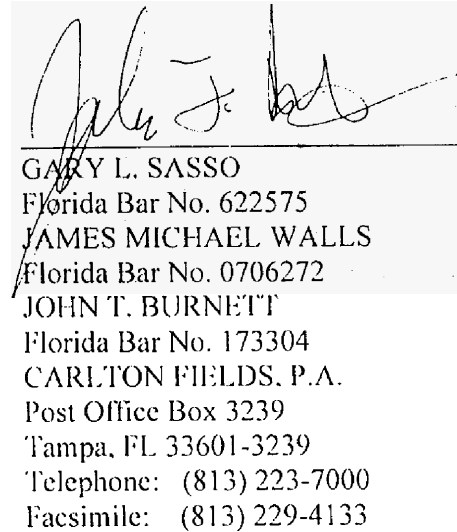 GARY L. SASSO
Florida Bar No. 622575
JAMES MICHAEL WALLS
Florida Bar No. 0706272
JOHN T. BURNETT
Florida Bar No. 173304
CARLTON FIELDS, P.A.
Post Office Box 3239
Tampa, FL 33601-3239
Telephone: (813) 223-7000
Facsimile: (813) 229-4133